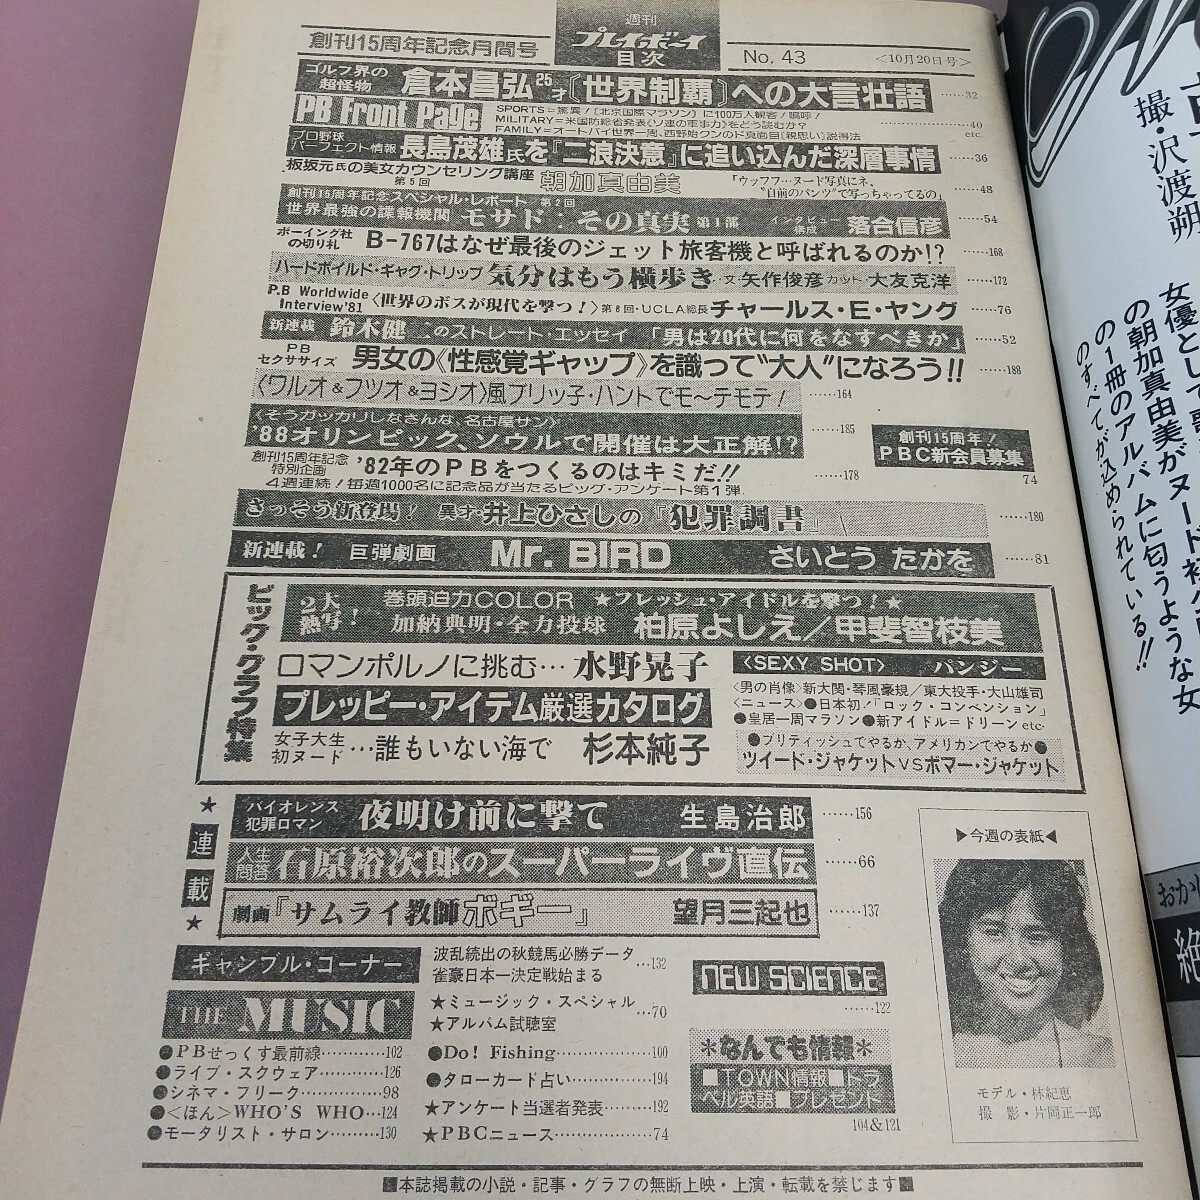 創刊15周年記念月間号
週刊
プレイボーイ
目次
No. 43
<10月20日号>
ゴルフ界の超怪物 倉本昌弘25才〔世界制覇〕への大言壮語……32
PB Front Page
SPORTS=驚異!〔北京国際マラソン〕に100万人観客!嗚呼!
MILITARY=米国防総省発表《ソ連の軍事力》をどう読むか?……40
FAMILY=オートバイ世界一周、西野始クンのド真面目[親思い]説得法 etc.
プロ野球パーフェクト情報 長島茂雄氏を『二浪決意』に追い込んだ深層事情……36
板坂元氏の美女カウンセリング講座 第5回 朝加真由美
「ウッフフ…ヌード写真にネ、
“自前のパンツ”で写っちゃってるの」……48
創刊15周年記念スペシャル・レポート 第2回
世界最強の諜報機関 モサド:その真実 第1部 インタビュー構成 落合信彦……54
ボーイング社の切り札 B-767はなぜ最後のジェット旅客機と呼ばれるのか!?……168
ハードボイルド・ギャグ・トリップ 気分はもう横歩き 文・矢作俊彦 カット・大友克洋……172
P.B Worldwide Interview'81 〈世界のボスが現代を撃つ!〉第8回・UCLA総長 チャールス・E・ヤング……76
新連載 鈴木健二のストレート・エッセイ 「男は20代に何をなすべきか」……52
PBセクササイズ 男女の《性感覚ギャップ》を識って“大人”になろう!!……188
〈ワルオ&フツオ&ヨシオ〉風ブリッ子・ハントでモ〜テモテ!……164
〈そうガッカリしなさんな、名古屋サン〉
'88オリンピック、ソウルで開催は大正解!?……185
創刊15周年!
PBC新会員募集
74
創刊15周年記念特別企画 '82年のPBをつくるのはキミだ!!……178
4週連続!毎週1000名に記念品が当たるビッグ・アンケート第1弾.
さっそう新登場! 異才・井上ひさしの『犯罪調書』……180
新連載! 巨弾劇画 Mr. BIRD さいとう たかを……81
ビッグ・グラフ特集
2大熱写! 巻頭迫力COLOR ★フレッシュ・アイドルを撃つ!★
加納典明・全力投球 柏原よしえ/甲斐智枝美
ロマンポルノに挑む… 水野晃子
プレッピー・アイテム厳選カタログ
女子大生初ヌード …誰もいない海で 杉本純子
〈SEXY SHOT〉 パンジー
〈男の肖像〉新大関・琴風豪規/東大投手・大山雄司
〈ニュース〉●日本初!「ロック・コンベンション」
●皇居一周マラソン●新アイドル=ドリーン etc-
●ブリティッシュでやるか、アメリカンでやるか●
ツイード・ジャケットVSボマー・ジャケット
★連載★
バイオレンス犯罪ロマン 夜明け前に撃て 生島治郎……156
人生問答 石原裕次郎のスーパーライヴ直伝……66
劇画『サムライ教師ボギー』 望月三起也……137
▶今週の表紙◀
モデル・林紀恵
撮 影・片岡正一郎
ギャンブル・コーナー
波乱続出の秋競馬必勝データ
雀豪日本一決定戦始まる…132
THE MUSIC
★ミュージック・スペシャル
★アルバム試聴室…70
●PBせっくす最前線…………102
●ライブ・スクウェア…………126
●シネマ・フリーク……98
●<ほん>WHO'S WHO…124
●モータリスト・サロン……130
●Do! Fishing………………100
●タローカード占い……194
★アンケート当選者発表……192
★PBCニュース……74
NEW SCIENCE
……122
*なんでも情報*
■TOWN情報■トラベル英語■プレゼント
104&121
■本誌掲載の小説・記事・グラフの無断上映・上演・転載を禁じます■
撮・沢渡朔
の朝加真由美がヌード
の1冊のアルバムに匂うような女
のすべてが込められている!!